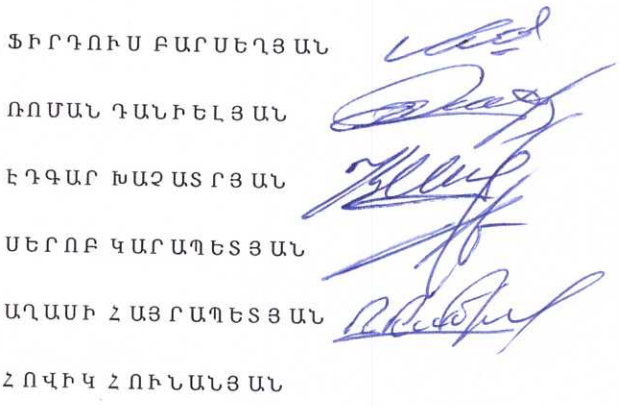 ՖԻՐԴՈՒՍ ԲԱՐՍԵՂՅԱՆ
ՌՈՄԱՆ ԴԱՆԻԵԼՅԱՆ
ԷԴԳԱՐ ԽԱՉԱՏՐՅԱՆ
ՍԵՐՈԲ ԿԱՐԱՊԵՏՅԱՆ
ԱՂԱՍԻ ՀԱՅՐԱՊԵՏՅԱՆ
ՀՈՎԻԿ ՀՈՒՆԱՆՅԱՆ